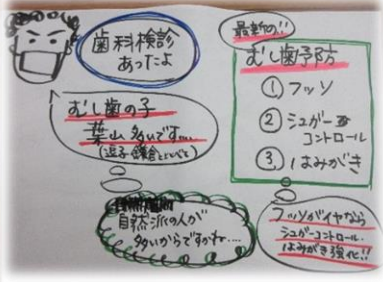 歯科検診
あったよ
むし歯の子
葉山、多いです....
(逗子・鎌倉とくらべると)
自然派の人が
多いからですかね....
最新の!!
むし歯予防
① フッソ
② シュガー
コントロール
③ はみがき
フッソがイヤなら
シュガーコントロール.
はみがき強化!!